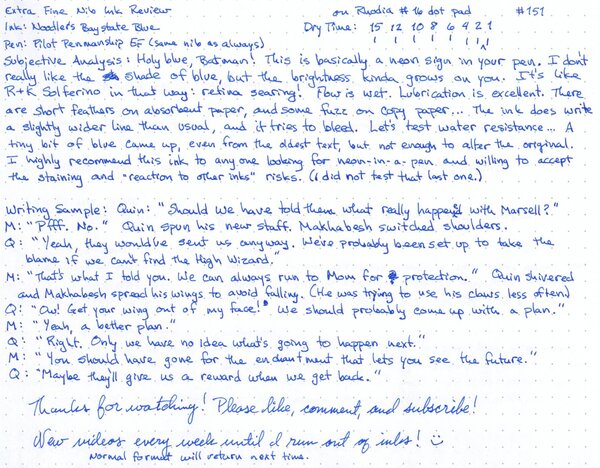 Extra Fine Nib Ink Review on Rhodia #16 dot pad #151
Ink: Noodler's Baystate Blue Dry Time: 15 12 10 8 6 4 2 1
Pen: Pilot Penmanship EF (same nib as always)
Subjective Analysis: Holy blue, Batman! This is basically a neon sign in your pen. I don't
really like the shade of blue, but the brightness kinda grows on you. It's like
R+K Solferino in that way: retina searing! Flow is wet. Lubrication is excellent. There
are short feathers on absorbent paper, and some fuzz on copy paper... The ink does write
a slightly wider line than usual, and it tries to bleed. Let's test water resistance... A
tiny bit of blue came up, even from the oldest text, but not enough to alter the original.
I highly recommend this ink to anyone looking for neon-in-a-pen and willing to accept
the staining and "reaction to other inks" risks. (I did not test that last one.)
Writing Sample: Quin: "Should we have told them what really happened with Marsell?"
M: "Pfff. No." Quin spun his new staff. Makhabesh switched shoulders.
Q: "Yeah, they would've sent us anyway. We've probably been set up to take the
blame if we can't find the High Wizard."
M: "That's what I told you. We can always run to Mom for protection." Quin shivered
and Makhabesh spread his wings to avoid falling. (He was trying to use his claws less often)
Q: "Ow! Get your wing out of my face!" We should probably come up with a plan."
M: "Yeah, a better plan."
Q: "Right. Only we have no idea what's going to happen next."
M: "You should have gone for the enchantment that lets you see the future."
Q: "Maybe they'll give us a reward when we get back."
Thanks for watching! Please like, comment, and subscribe!
New videos every week until I run out of inks! :)
Normal format will return next time.